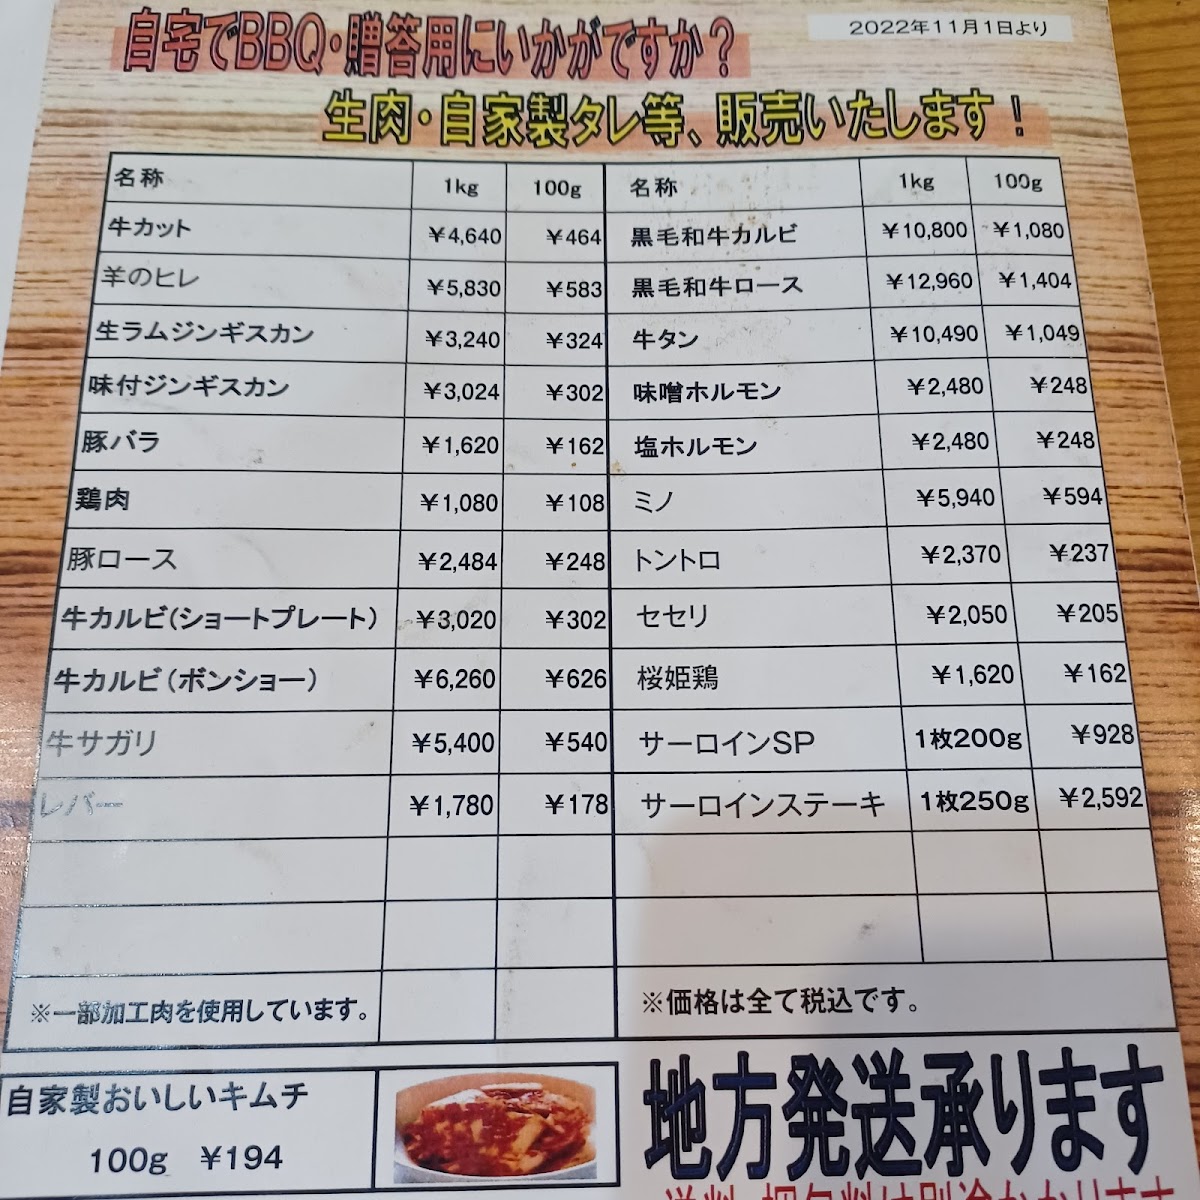 2022年11月1日より
自宅でBBQ・贈答用にいかがですか？
生肉・自家製タレ等、販売いたします！
名称 1kg 100g 名称 1kg 100g
牛カット ¥4,640 ¥464 黒毛和牛カルビ ¥10,800 ¥1,080
羊のヒレ ¥5,830 ¥583 黒毛和牛ロース ¥12,960 ¥1,404
生ラムジンギスカン ¥3,240 ¥324 牛タン ¥10,490 ¥1,049
味付ジンギスカン ¥3,024 ¥302 味噌ホルモン ¥2,480 ¥248
豚バラ ¥1,620 ¥162 塩ホルモン ¥2,480 ¥248
鶏肉 ¥1,080 ¥108 ミノ ¥5,940 ¥594
豚ロース ¥2,484 ¥248 トントロ ¥2,370 ¥237
牛カルビ(ショートプレート) ¥3,020 ¥302 セセリ ¥2,050 ¥205
牛カルビ(ボンショー) ¥6,260 ¥626 桜姫鶏 ¥1,620 ¥162
牛サガリ ¥5,400 ¥540 サーロインSP 1枚200g ¥928
レバー ¥1,780 ¥178 サーロインステーキ 1枚250g ¥2,592
※一部加工肉を使用しています。 ※価格は全て税込です。
自家製おいしいキムチ
100g ¥194
地方発送承ります
送料・梱包料は別途かかります